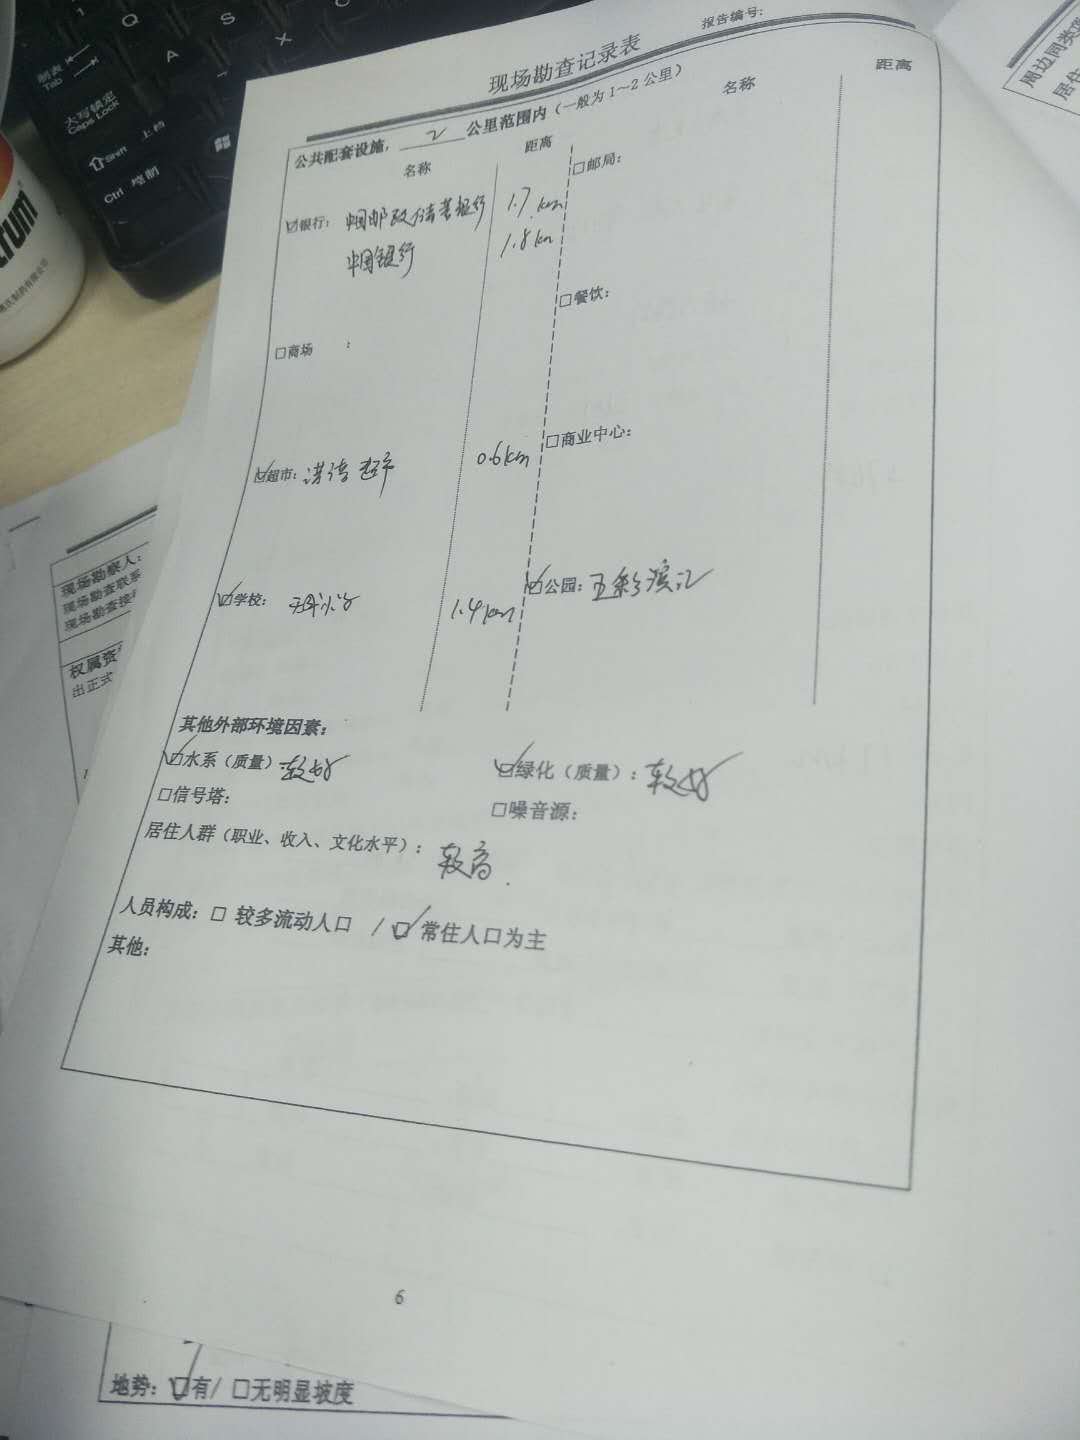 现场勘查记录表
报告编号:
公共配套设施, 2 公里范围内(一般为1~2公里)
名称 距离 名称 距离
☑银行: 中国邮政储蓄银行 1.7km □邮局:
中国银行 1.8km
□餐饮:
□商场 :
□商业中心:
☑超市: 超市 0.6km
☑学校: 小学 1.4km ☑公园: 五彩滨江
其他外部环境因素:
☑水系(质量)较好 ☑绿化(质量): 较好
□信号塔: □噪音源:
居住人群(职业、收入、文化水平): 较高.
人员构成: □ 较多流动人口 / ☑ 常住人口为主
其他:
6
地势: ☑有/ □无明显坡度
现场勘察人:
现场勘查联系
现场勘查接
权属资
出正式
周边同类
居住
制表
Tab
大写锁定
Caps Lock
上档
Shift
Ctrl 控制
Q
A
S
X